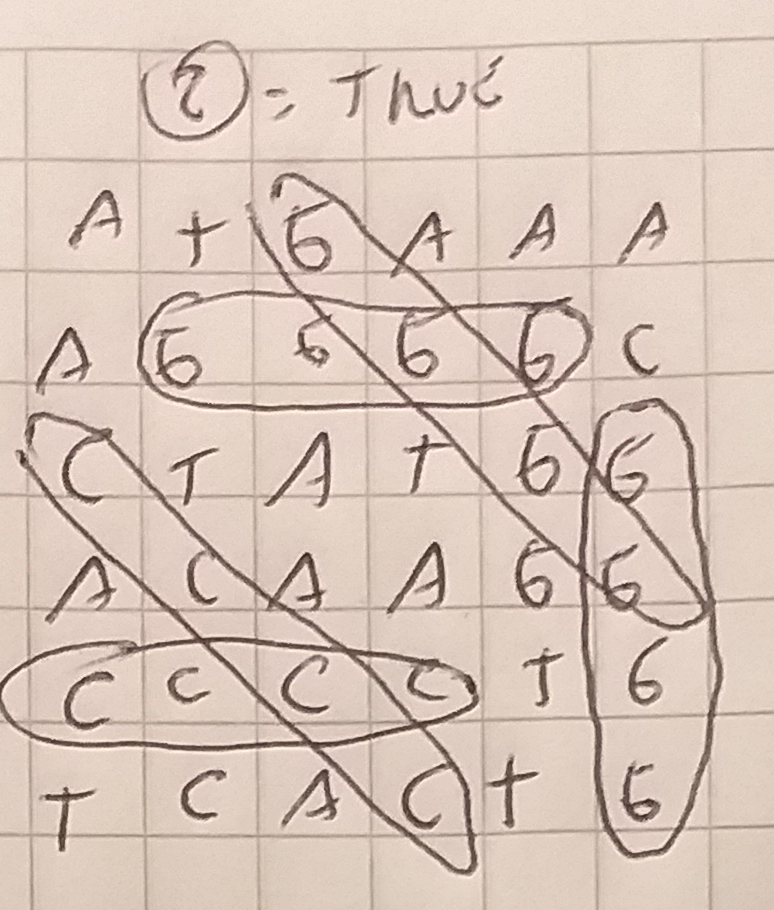 ② = TRUE
A T G A A A
A G G G G C
C T A T G G
A C A A G G
C C C C T G
T C A C T G